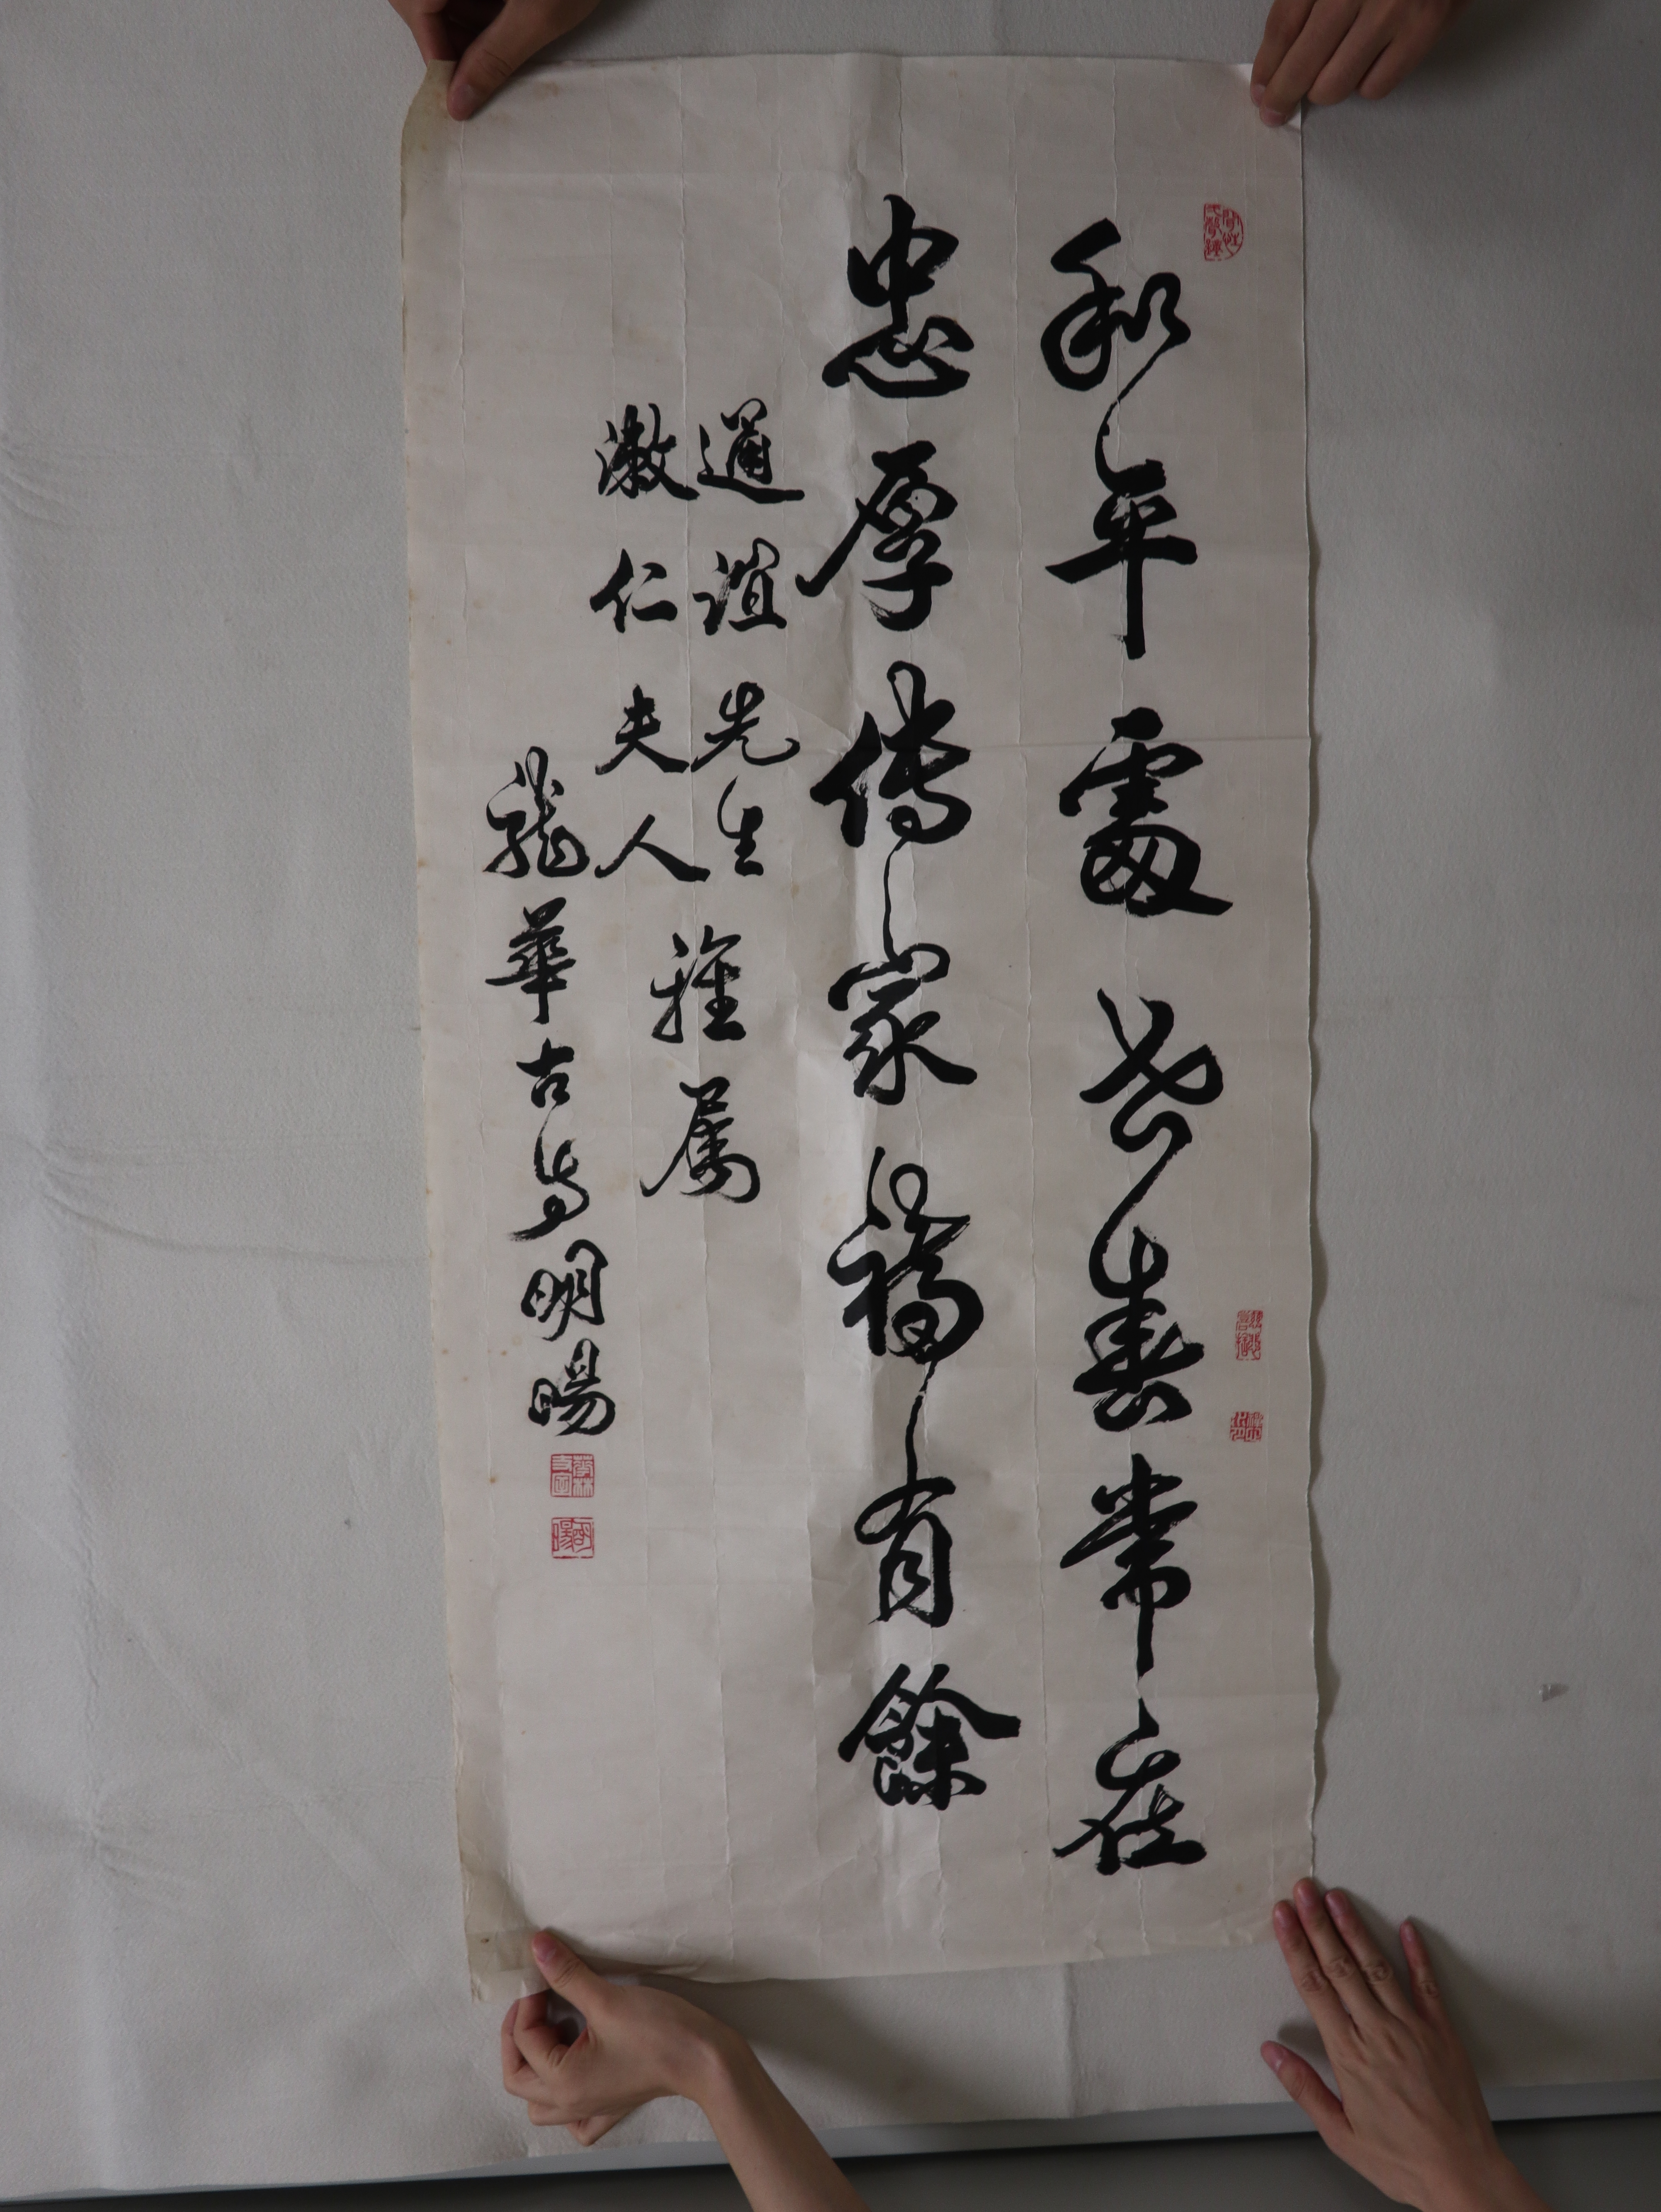 和平處世春常在
忠厚傳家福有餘
通誼先生
漱仁夫人
雅屬
龍華古寺明暘